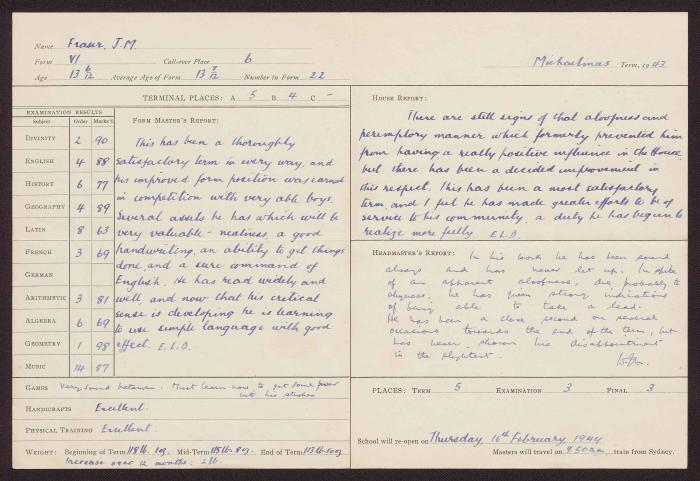 Name Fraser, J.M.
Form VI Call-over Place 6
Age 13 6/12 Average Age of Form 13 7/12 Number in Form 22
Michaelmas Term, 1943
TERMINAL PLACES: A 5 B 4 C -
EXAMINATION RESULTS
Subject Order Marks%
DIVINITY 2 90
ENGLISH 4 88
HISTORY 6 77
GEOGRAPHY 4 89
LATIN 8 63
FRENCH 3 69
GERMAN
ARITHMETIC 3 81
ALGEBRA 6 69
GEOMETRY 1 98
MUSIC 14 87
FORM MASTER'S REPORT:
This has been a thoroughly
satisfactory term in every way, and
his improved form position was earned
in competition with very able boys.
Several assets he has which will be
very valuable - neatness, a good
handwriting, an ability to get things
done, and a sure command of
English. He has read widely and
well, and now that his critical
sense is developing he is learning
to use simple language with good
effect. E.L.D.
GAMES Very sound batsman. Must learn how to get some power
into his strokes
HANDICRAFTS Excellent.
PHYSICAL TRAINING Excellent.
WEIGHT: Beginning of Term 118 lb. 1 oz. Mid-Term 115 lb. 8 oz. End of Term 113 lb.
Increase over 12 months: lb.
HOUSE REPORT:
There are still signs of that aloofness and
peremptory manner which formerly prevented him
from having a really positive influence in the House,
but there has been a decided improvement in
this respect. This has been a most satisfactory
term, and I feel he has made greater efforts to be of
service to his community, a duty he has begun to
realize more fully. E.L.D.
HEADMASTER'S REPORT: In his work he has been sound
always and has never let up. In spite
of an apparent aloofness, due probably to
shyness, he has given strong indications
of being able to take a lead.
He has been a close second on several
occasions towards the end of the term, but
has never shown his disappointment
in the slightest.
PLACES: TERM 5 EXAMINATION 3 FINAL 3
School will re-open on Thursday 10th February 1944
Masters will travel on 8.50 a.m. train from Sydney.